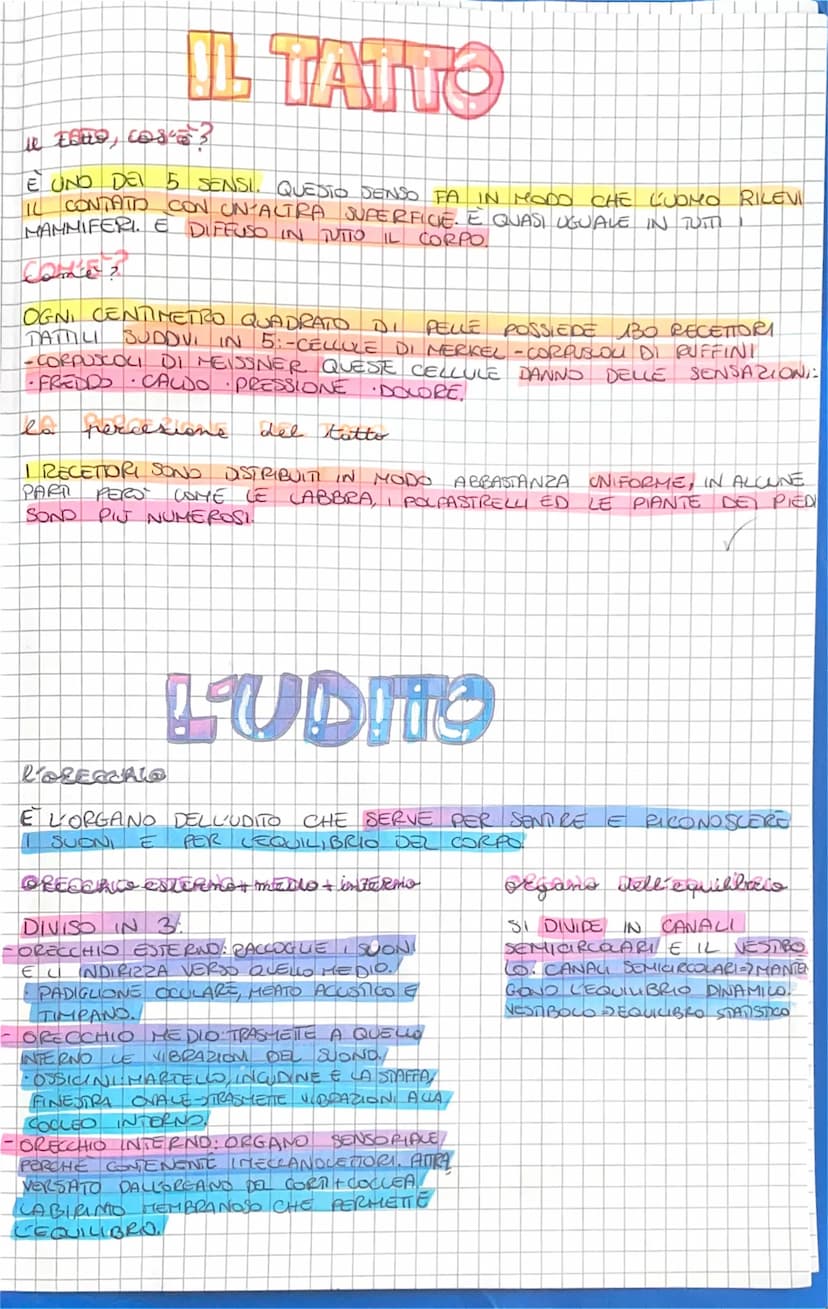 IL TATTO
il tatto, COS'È?
È UNO DEI 5 SENSI. QUESTO SENSO FA IN MODO CHE L'UOMO RILEVI
IL CONTATO CON UN'ALTRA SUPERFICIE. È QUASI UGUALE IN TUTI I
MAMMIFERI. E DIFFUSO IN TUTTO IL CORPO.
COM'È?
OGNI CENTIMETRO QUADRATO DI PELLE POSSIEDE 130 RECETTORI
TATTILI SUDDIVI IN 5:-CELLULE DI MERKEL -CORPUSCOLI DI RUFFINI
-CORPUSCOLI DI MEISSNER QUESTE CELLULE DANNO DELLE SENSAZIONI:
·FREDDO ·CALDO ·PRESSIONE ·DOLORE.
la percezione del tatto
I RECETTORI SONO DISTRIBUITI IN MODO ABBASTANZA UNIFORME, IN ALCUNE
PARTI PERÒ COME LE LABBRA, I POLPASTRELLI ED LE PIANTE DEI PIEDI
SONO PIÙ NUMEROSI.
L'UDITO
L'ORECCHIO
È L'ORGANO DELL'UDITO CHE SERVE PER SENTIRE E RICONOSCERE
I SUONI E PER L'EQUILIBRIO DEL CORPO
ORECCHIO ESTERNO + MEDIO + INTERNO
DIVISO IN 3:
-ORECCHIO ESTERNO: RACCOGLIE I SUONI
E LI INDIRIZZA VERSO QUELLO MEDIO.
PADIGLIONE OCULARE, MEATO ACUSTICO E
TIMPANO.
- ORECCHIO MEDIO: TRASMETTE A QUELLO
INTERNO LE VIBRAZIONI DEL SUONO.
·OSSICINI: MARTELLO, INCUDINE E LA STAFFA,
FINESTRA OVALE→TRASMETTE VIBRAZIONI ALLA
COCLEO INTERNO.
- ORECCHIO INTERNO: ORGANO SENSORIALE
PERCHÈ CONTENENTE I MECCANOCETTORI. ATTRA
VERSATO DALL'ORGANO DEL CORTI+COCLEA.
LABIRINTO MEMBRANOSO CHE PERMETTE
L'EQUILIBRO.
Organo dell'equilibrio
SI DIVIDE IN CANALI
SEMICIRCOLARI E IL VESTIBO
LO. CANALI SEMICIRCOLARI⇒MANTEN
GONO L'EQUILIBRIO DINAMICO.
VESTIBOLO⇒EQUILIBRO STATISTICO